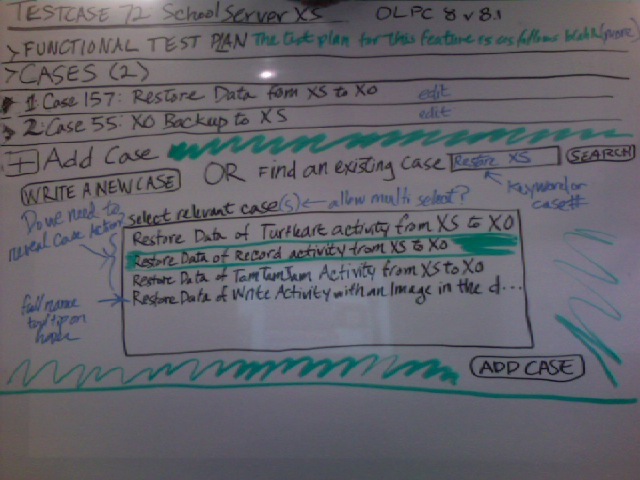 TESTCASE 72 School Server XS OLPC 8 v 8.1
> FUNCTIONAL TEST PLAN The test plan for this feature is as follows blah (more)
> CASES (2)
1: Case 157: Restore Data from XS to XO edit
2: Case 55: XO Backup to XS edit
+ Add Case
WRITE A NEW CASE OR Find an existing Case Restore XS SEARCH
Keyword or case #
Do we need to reveal Case Actor?
select relevant case(s) ← allow multi select?
Restore Data of TurtleArt activity from XS to XO
Restore Data of Record activity from XS to XO
Restore Data of TamTamJam Activity from XS to XO
Restore Data of Write Activity with an Image in the d...
full name tool tip on hover
ADD CASE